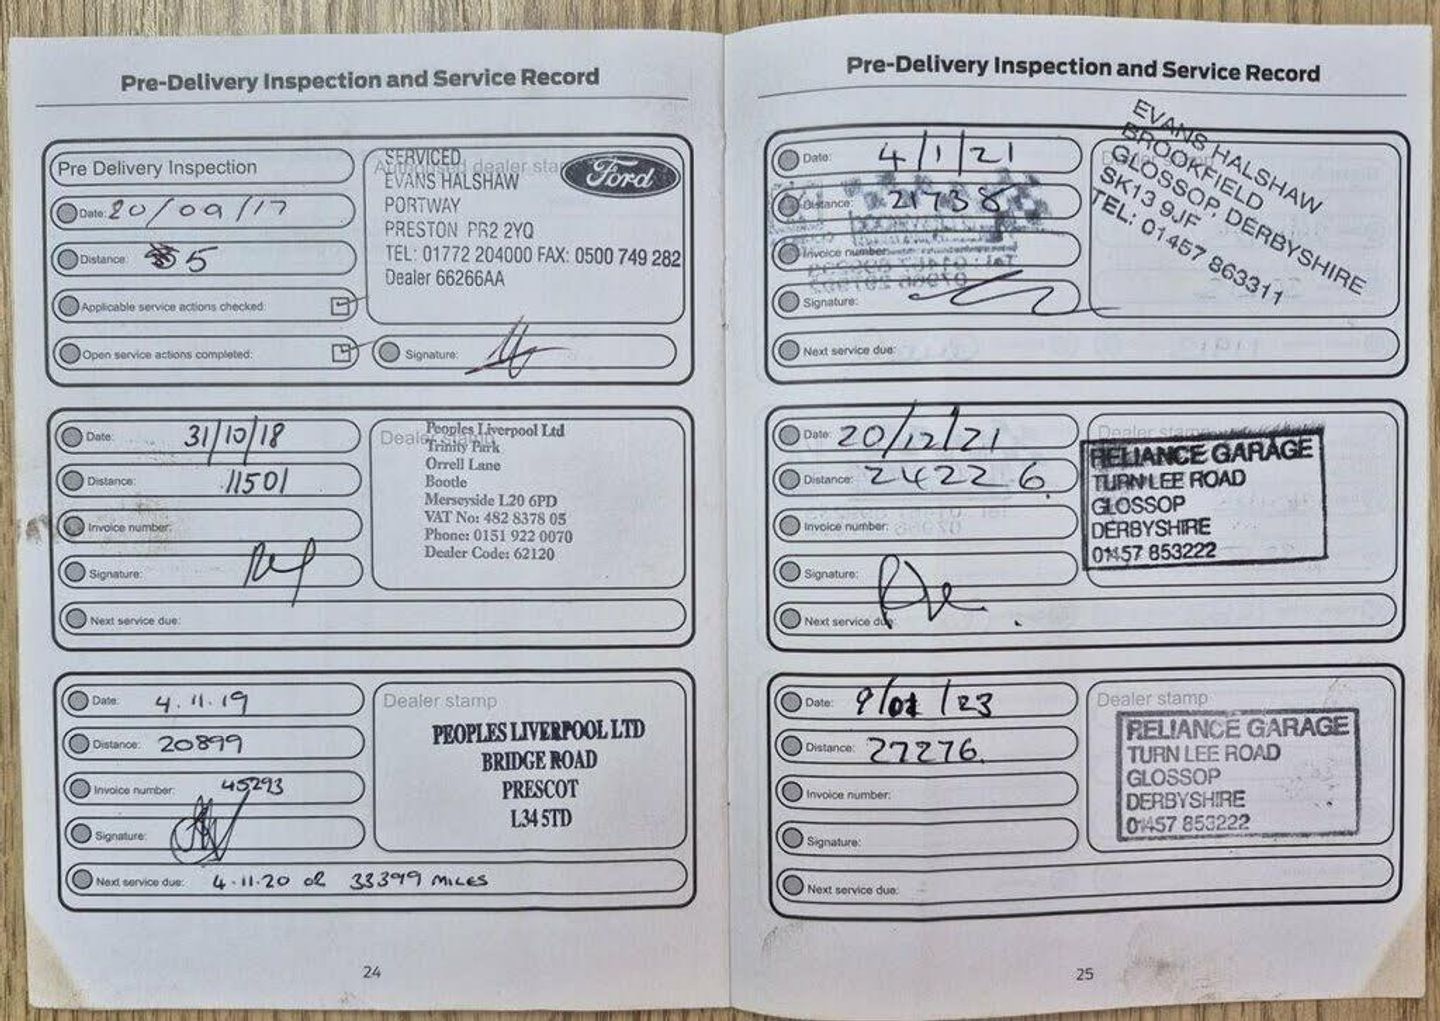 Pre-Delivery Inspection and Service Record
Pre Delivery Inspection
Date: 20/09/17
Distance: 5
Applicable service actions checked:
Open service actions completed:
Authorised dealer sta
SERVICED
EVANS HALSHAW
PORTWAY
PRESTON PR2 2YQ
TEL: 01772 204000 FAX: 0500 749 282
Dealer 66266AA
Ford
Signature:
Date: 31/10/18
Distance: 11501
Invoice number:
Signature:
Next service due:
Dealer stamp
Peoples Liverpool Ltd
Trinity Park
Orrell Lane
Bootle
Merseyside L20 6PD
VAT No: 482 8378 05
Phone: 0151 922 0070
Dealer Code: 62120
Date: 4.11.19
Distance: 20899
Invoice number: 45293
Signature:
Next service due: 4.11.20 or 33399 MILES
Dealer stamp
PEOPLES LIVERPOOL LTD
BRIDGE ROAD
PRESCOT
L34 5TD
24
Pre-Delivery Inspection and Service Record
Date: 4/1/21
Distance: 21738
Invoice number:
Signature:
Next service due:
EVANS HALSHAW
BROOKFIELD
GLOSSOP, DERBYSHIRE
SK13 9JF
TEL: 01457 863311
Date: 20/12/21
Distance: 24226.
Invoice number:
Signature:
Next service due:
Dealer stamp
RELIANCE GARAGE
TURN LEE ROAD
GLOSSOP
DERBYSHIRE
01457 853222
Date: 9/01/23
Distance: 27276.
Invoice number:
Signature:
Next service due:
Dealer stamp
RELIANCE GARAGE
TURN LEE ROAD
GLOSSOP
DERBYSHIRE
01457 853222
25